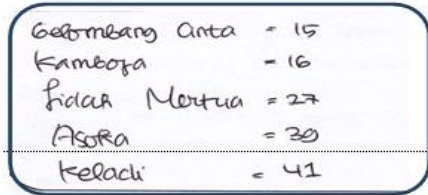 Gelombang Cinta = 15
Kamboja = 16
Lidah Mertua = 27
Asoka = 39
Keladi = 41